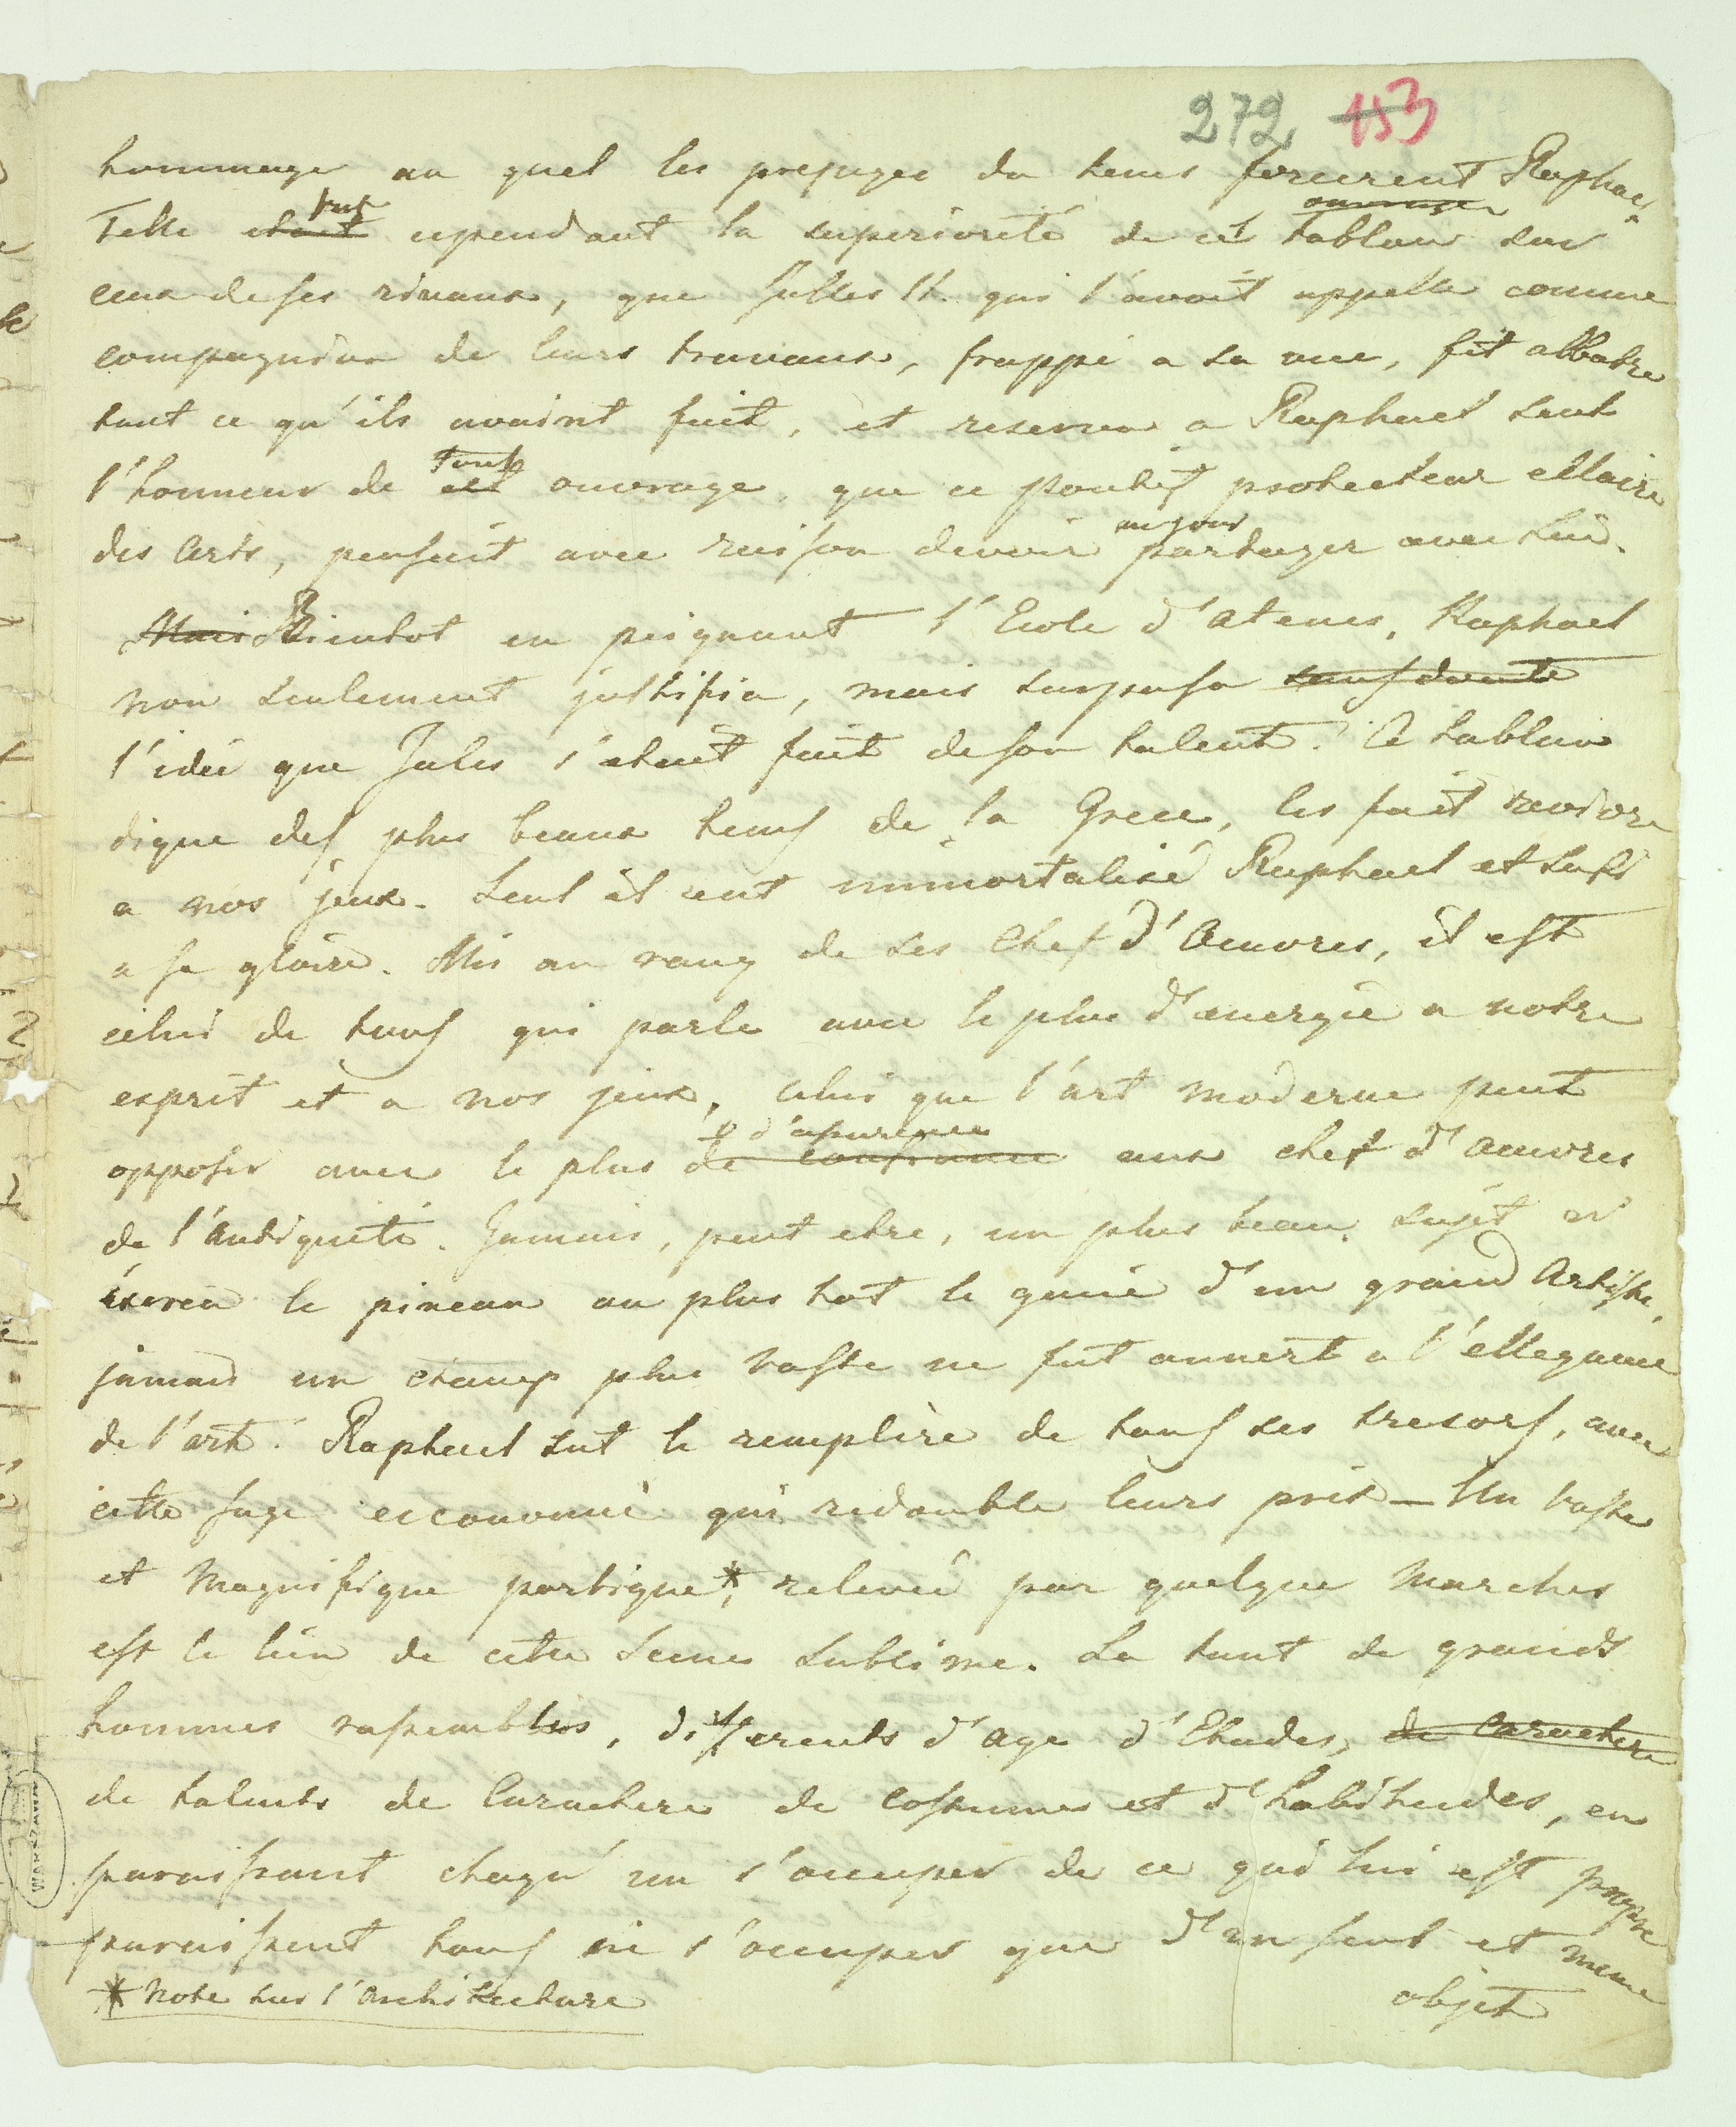 272 153
hommage au quel les prejugés du tems forcerent Raphael
fut ouvrage
Telle etait cependant la superiorité de cet tableau sur
ceux de ses rivaux, que Julles II. qui l'avait appellé comme
compagnion de leurs travaux, frappé a sa vue, fit abbatre
tout ce qu'ils avoint fait, et reserva a Raphael seul
tout
l'honneur de cet ouvrage, que ce pontif protecteur éclairé
un jour
des Arts, pensait avec raison devoir partager avec lui.
Mais Bientot en peignant l'Ecole d'Atenes, Raphael
non seulement justifia, mais surpassa sans doute
l'idée que Jules s'etait fait de son talent. Ce tableau
digne des plus beaux tems de la Grece, les fait revivre
a nos jeux. Seul il eut immortalisé Raphael et sufi
a sa gloire. Mis au rang de ses Chef d'Oeuvres, il est
celui de tous qui parle avec le plus d'energie a notre
esprit et a nos jeux, celui que l'art moderne peut
d'assurance
opposer avec le plus de confiance aux chef d'oeuvres
de l'Antiquité. Jamais, peut etre, un plus beau sujet n'
éxerca le pinceau au plus tot le genie d'un grand Artiste,
jamais un champ plus vaste ne fut ouvert a l'ellegance
de l'art. Raphael sut le remplire de tous ses tresors, avec
cette sage economie qui redouble leurs prix – Un vaste
et Magnifique portique*, relevé par quelque Marches
est le lieu de cette scene sublime. La tant de grands
hommes rassemblés, differents d'age d'Etudes, de caractere
de talents de Caractere de costumes et d'habitudes, en
paraissant chaqu'un s'occuper de ce qui lui est propre
paraissent tous ne s'occuper que d'un seul et meme
objet
* Note sur l'Architecture